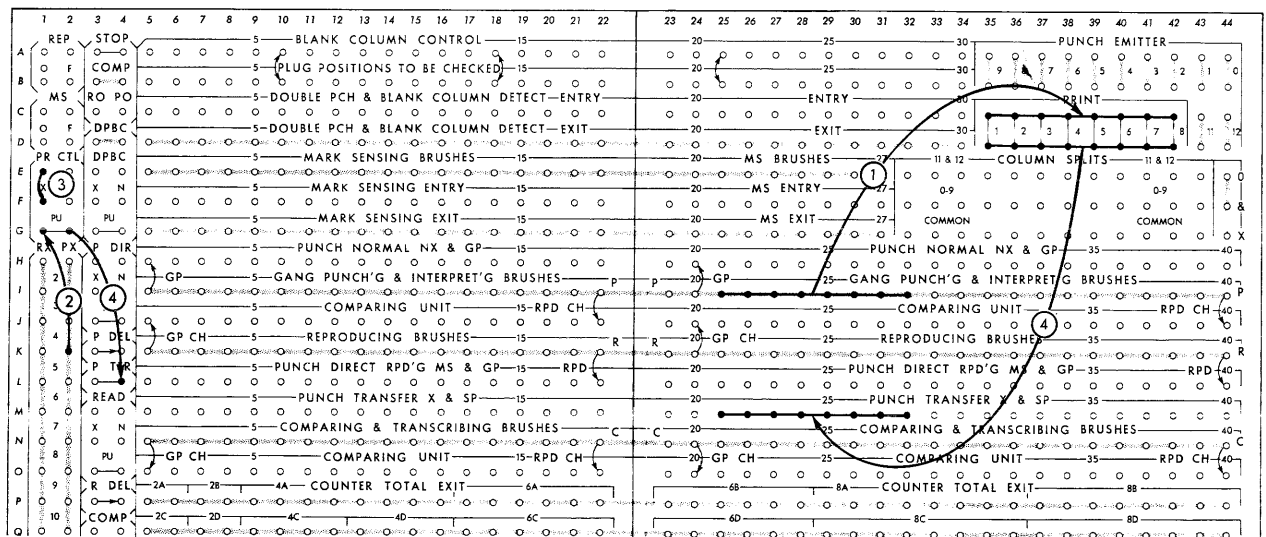 1 2 3 4 5 6 7 8 9 10 11 12 13 14 15 16 17 18 19 20 21 22 23 24 25 26 27 28 29 30 31 32 33 34 35 36 37 38 39 40 41 42 43 44
REP STOP 5 BLANK COLUMN CONTROL 15 20 25 30 PUNCH EMITTER
A
F COMP 5 PLUG POSITIONS TO BE CHECKED 15 20 25 30 9 7 6 5 4 3 2 1 0
B
MS RO PO 5 DOUBLE PCH & BLANK COLUMN DETECT-ENTRY 20 ENTRY 30 PRINT
C
F DPBC 5 DOUBLE PCH & BLANK COLUMN DETECT-EXIT 20 EXIT 30 1 2 3 4 5 6 7 8 11 12
D
PR CTL DPBC 5 MARK SENSING BRUSHES 15 20 MS BRUSHES 27 11 & 12 COLUMN SPLITS 11 & 12
E 0
3 1
X X N 5 MARK SENSING ENTRY 15 20 MS ENTRY 27 0-9 0-9 &
F
PU PU 5 MARK SENSING EXIT 15 20 MS EXIT 27 COMMON COMMON X
G
RX PX P DIR 5 PUNCH NORMAL NX & GP 15 20 25 PUNCH NORMAL NX & GP 35 40
H
2 X N GP 5 GANG PUNCH'G & INTERPRET'G BRUSHES P P 20 GP 25 GANG PUNCH'G & INTERPRET'G BRUSHES 40 P
I
2 4 5 COMPARING UNIT 15 RPD CH 20 25 COMPARING UNIT 35 RPD CH 40
J
4 P DEL GP CH 5 REPRODUCING BRUSHES 15 R R 20 GP CH 25 REPRODUCING BRUSHES 35 40 R
4
K
5 5 PUNCH DIRECT RPD'G MS & GP 15 RPD 20 25 PUNCH DIRECT RPD'G MS & GP 35 RPD 40
L
6 READ 5 PUNCH TRANSFER X & SP 15 20 25 PUNCH TRANSFER X & SP 35 40
M
7 X N 5 COMPARING & TRANSCRIBING BRUSHES C C 20 25 COMPARING & TRANSCRIBING BRUSHES 40 C
N
8 PU GP CH 5 COMPARING UNIT 15 RPD CH 20 GP CH 25 COMPARING UNIT 35 RPD CH 40
O
9 R DEL 2A 2B 4A COUNTER TOTAL EXIT 6A 6B 8A COUNTER TOTAL EXIT 8B
P
10 COMP 2C 2D 4C 4D 6C 6D 8C 8D
Q